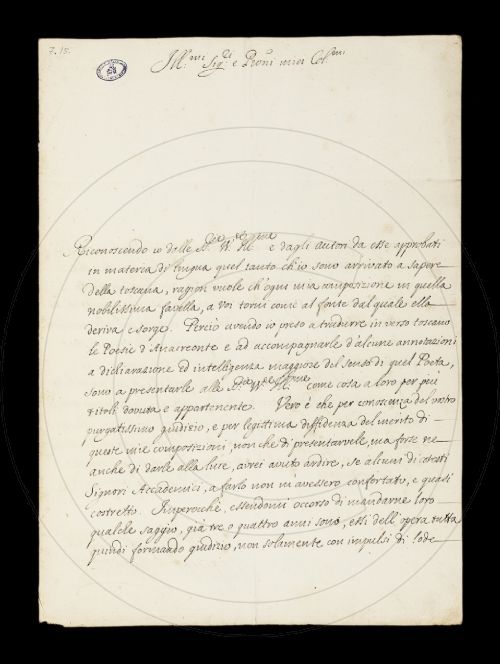 7.15.
Ill.mi Sig.ri e Proni miei Col.mi
Riconoscendo io dalle e dagli autori da esse approbati
in materia di lingua quel tanto ch'io sono arrivato a sapere
della toscana, ragion vuole ch'ogni mia composizione in quella
nobilissima favella, a Voi torni come al fonte dal quale ella
deriva e sorge. Perciò avendo io preso a tradurre in verso toscano
le Poesie d'Anacreonte e ad accompagnarle d'alcune annotazioni
a dichiarazione ed intelligenza maggiore del senso di quel Poeta,
sono a presentarle alle come cosa a loro per più
titoli dovuta e appartenente. Vero è che per conoscenza del vostro
purgatissimo giudizio, e per legittima diffidenza del merito di
queste mie composizioni, non che di presentarvele, ma forse ne
anche di darle alla luce, avrei avuto ardire, se alcuni di cotesti
Signori Accademici, a farlo non m'avessero confortato, e quasi
costretto. Imperocchè, essendomi occorso di mandarne loro
qualche saggio, già tre o quattro anni sono, essi dell'opera tutta
quindi formando giudizio, non solamente con impulsi di lode